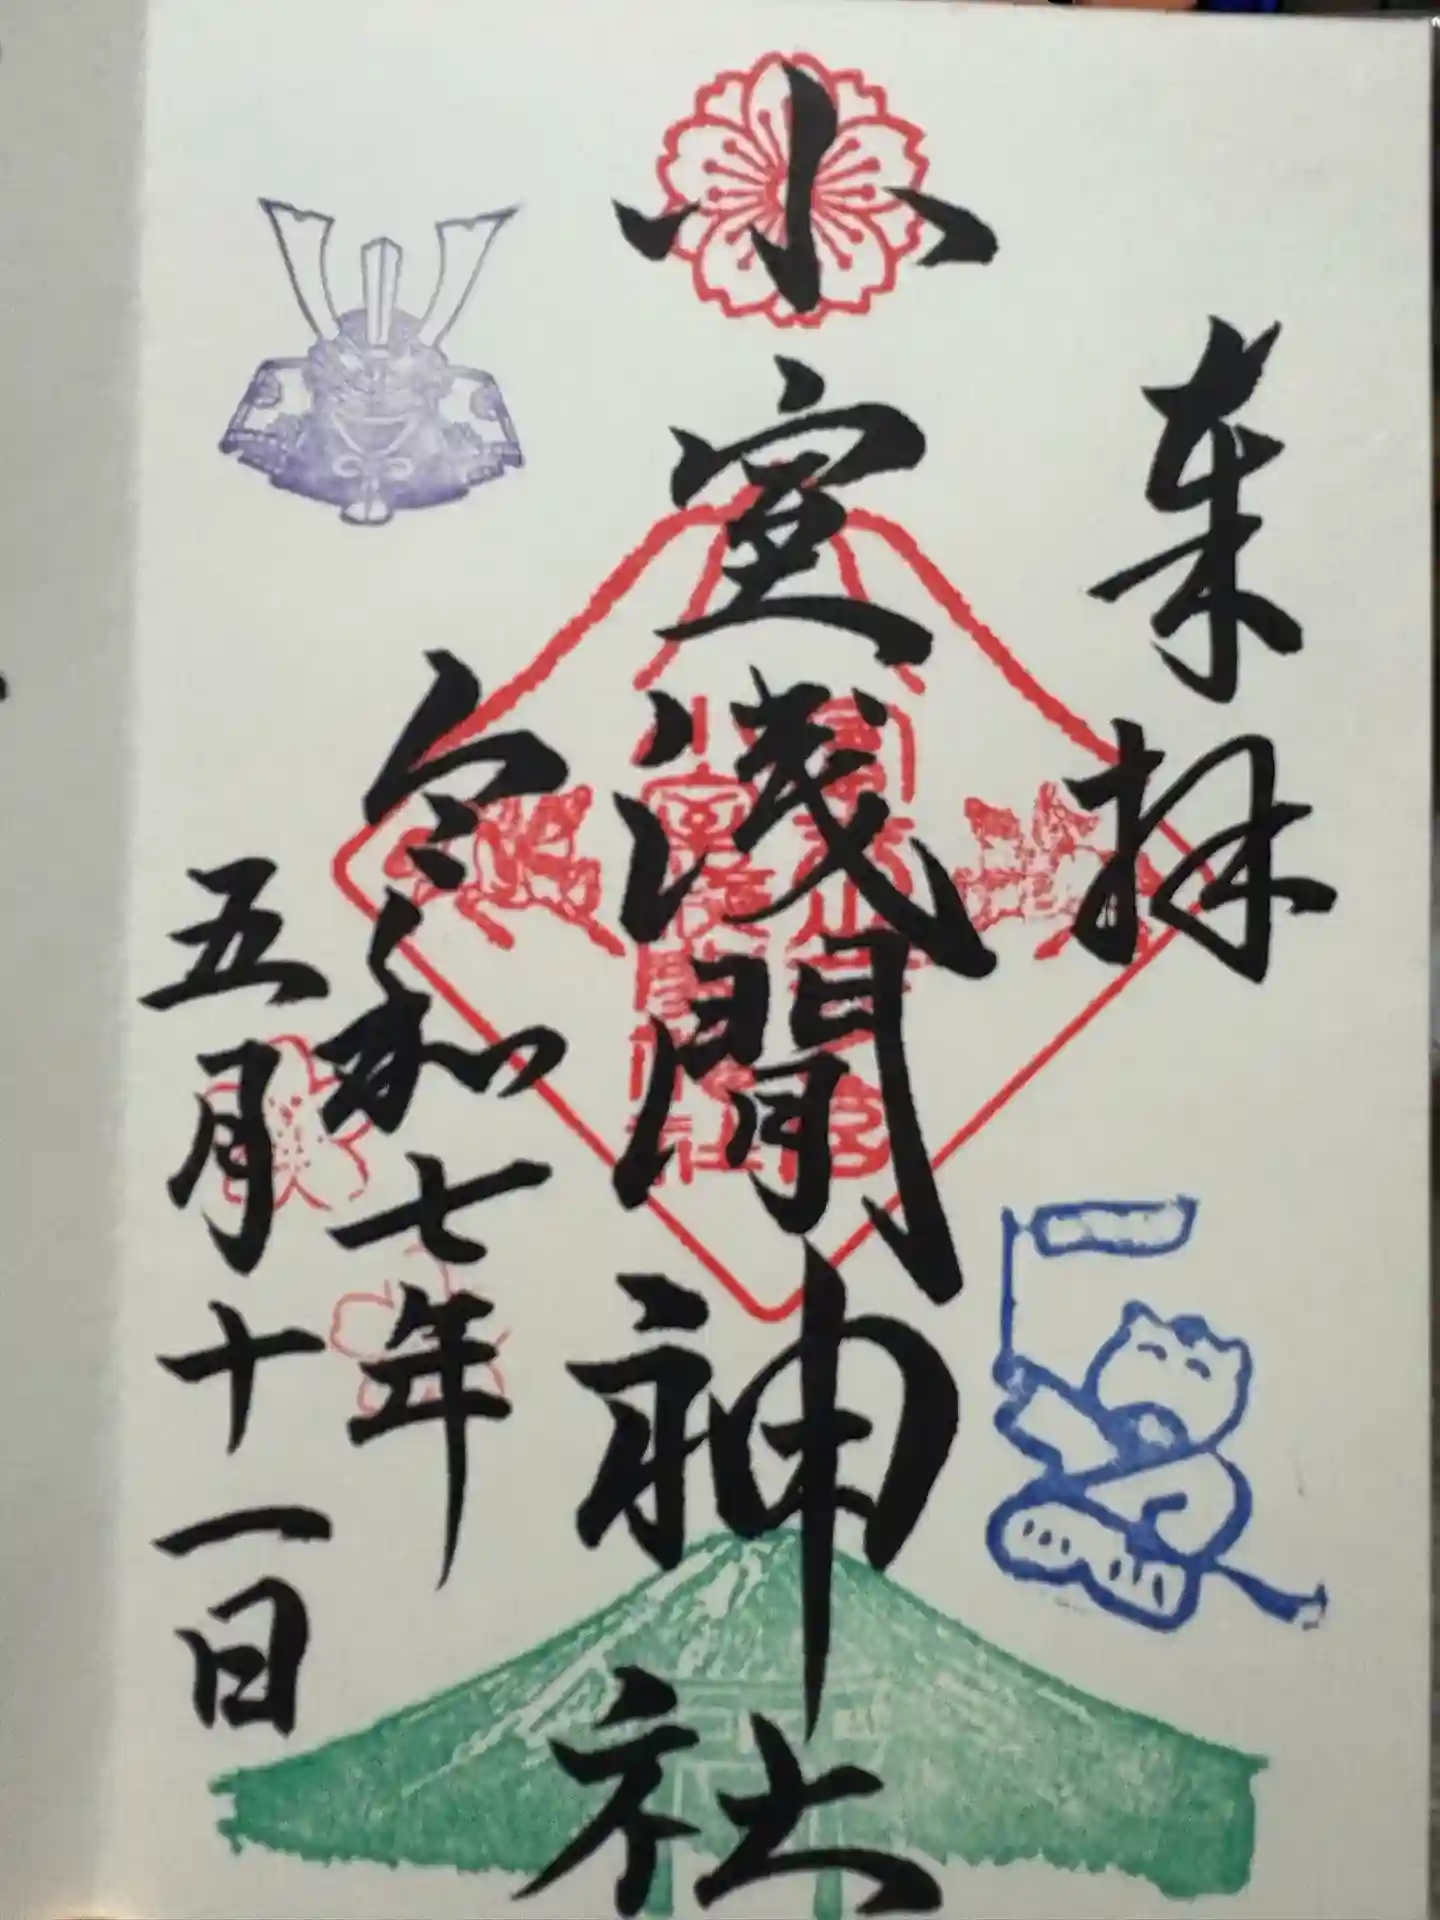 奉拝
小室浅間神社
令和七年
五月十一日